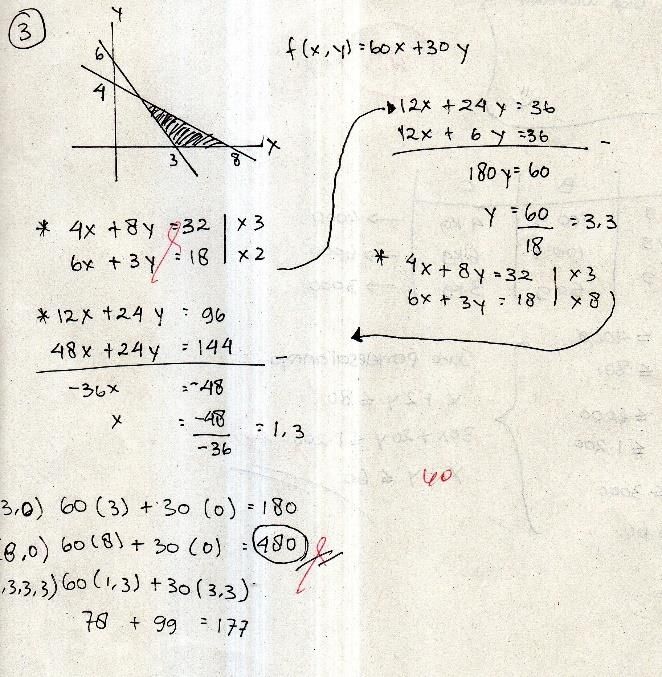 3
Y
6
4
3
8
X
f(x,y)=60x+30y
12x + 24y = 36
12x + 6y = 36
-
180y = 60
y = 60/18 = 3,3
* 4x + 8y = 32 | x 3
6x + 3y = 18 | x 2
* 4x + 8y = 32 | x 3
6x + 3y = 18 | x 8
* 12x + 24y = 96
48x + 24y = 144
-36x = -48
x = -48/-36 = 1,3
40
3,0) 60(3) + 30(0) = 180
(8,0) 60(8) + 30(0) = 480
,3,3,3) 60(1,3) + 30(3,3)
78 + 99 = 177